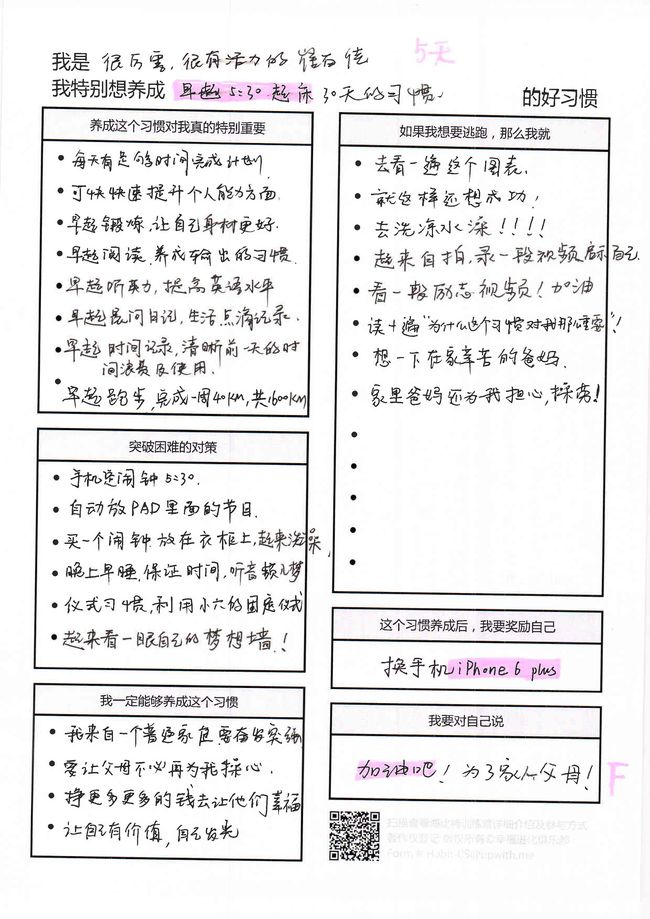 5天
我是 很厉害,很有活力的
我特别想养成 早起5:30起床30天的习惯. 的好习惯
养成这个习惯对我真的特别重要
每天有足够时间完成计划.
可快快速提升个人能力方面.
早起锻炼,让自己身材更好.
早起阅读.养成输出的习惯.
早起听英力,提高英语水平
早起晨间日记,生活点滴记录.
早起时间记录,清晰前一天的时
间浪费及使用.
早起跑步,完成一周40KM,共1600KM
突破困难的对策
手机定闹钟5:30.
自动放PAD里面的节目.
买一个闹钟放在衣柜上,起来洗澡,
晚上早睡.保证时间,听音频
仪式习惯,利用小六的固定仪式
起来看一眼自己的梦想墙!
我一定能够养成这个习惯
我来自一个普通家庭需奋发
要让父母不必再为我操心.
挣更多更多的钱去让他们幸福
让自己有价值,自己发光
如果我想要逃跑,那么我就
去看一遍这个图表.
就这样还想成功!
去洗凉水澡!!!!
起来自拍,录一段视频
看一段励志视频!加油
读十遍"为什么这个习惯对我那么重要"!
想一下在家辛苦的爸妈.
家里爸妈还为我担心,操劳!
这个习惯养成后,我要奖励自己
换手机iPhone 6 plus
我要对自己说
加油吧!为了家人父母!
F
扫描查看